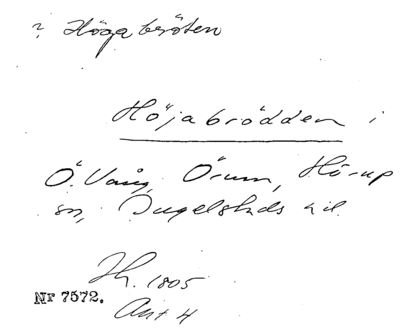 ? Höga bröten
Höjabrödden i
Ö. Vång, Örum, Hörup
sn, Ingelstads hd.
Sh. 1805
Nr 7572.
Akt 4